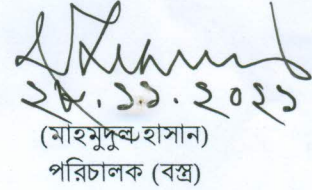 ২৮.১১.২০২১
(মাহমুদুল হাসান)
পরিচালক (বস্ত্র)